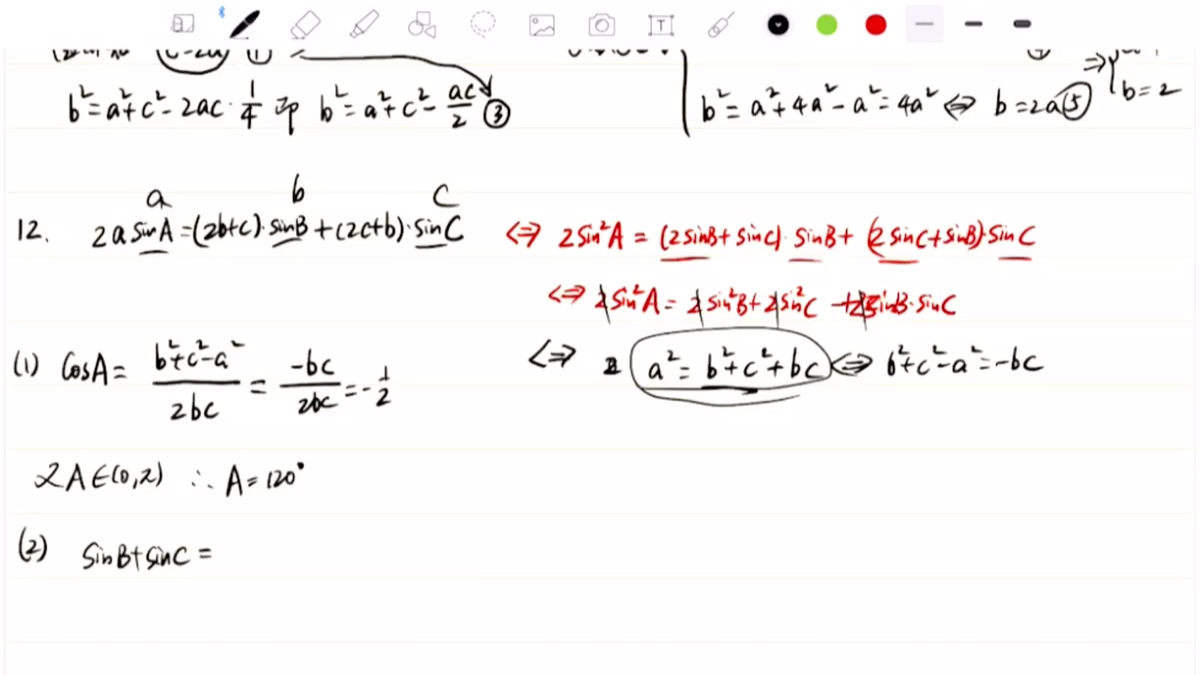 b²=a²+c²-2ac·1/4 即 b²=a²+c²-ac/2 ③
b²=a²+4a²-a²=4a² ⇔ b=2a ⑤
b=2
a b c
12. 2a sinA=(2b+c)·sinB+(2c+b)·sinC
⇔ 2sin²A=(2sinB+sinC)·sinB+(2sinC+sinB)·sinC
⇔ 2sin²A=2sin²B+2sin²C+2sinB·sinC
⇔ a²=b²+c²+bc ⇔ b²+c²-a²=-bc
(1) cosA=(b²+c²-a²)/2bc=-bc/2bc=-1/2
又A∈(0,π) ∴A=120°
(2) sinB+sinC=